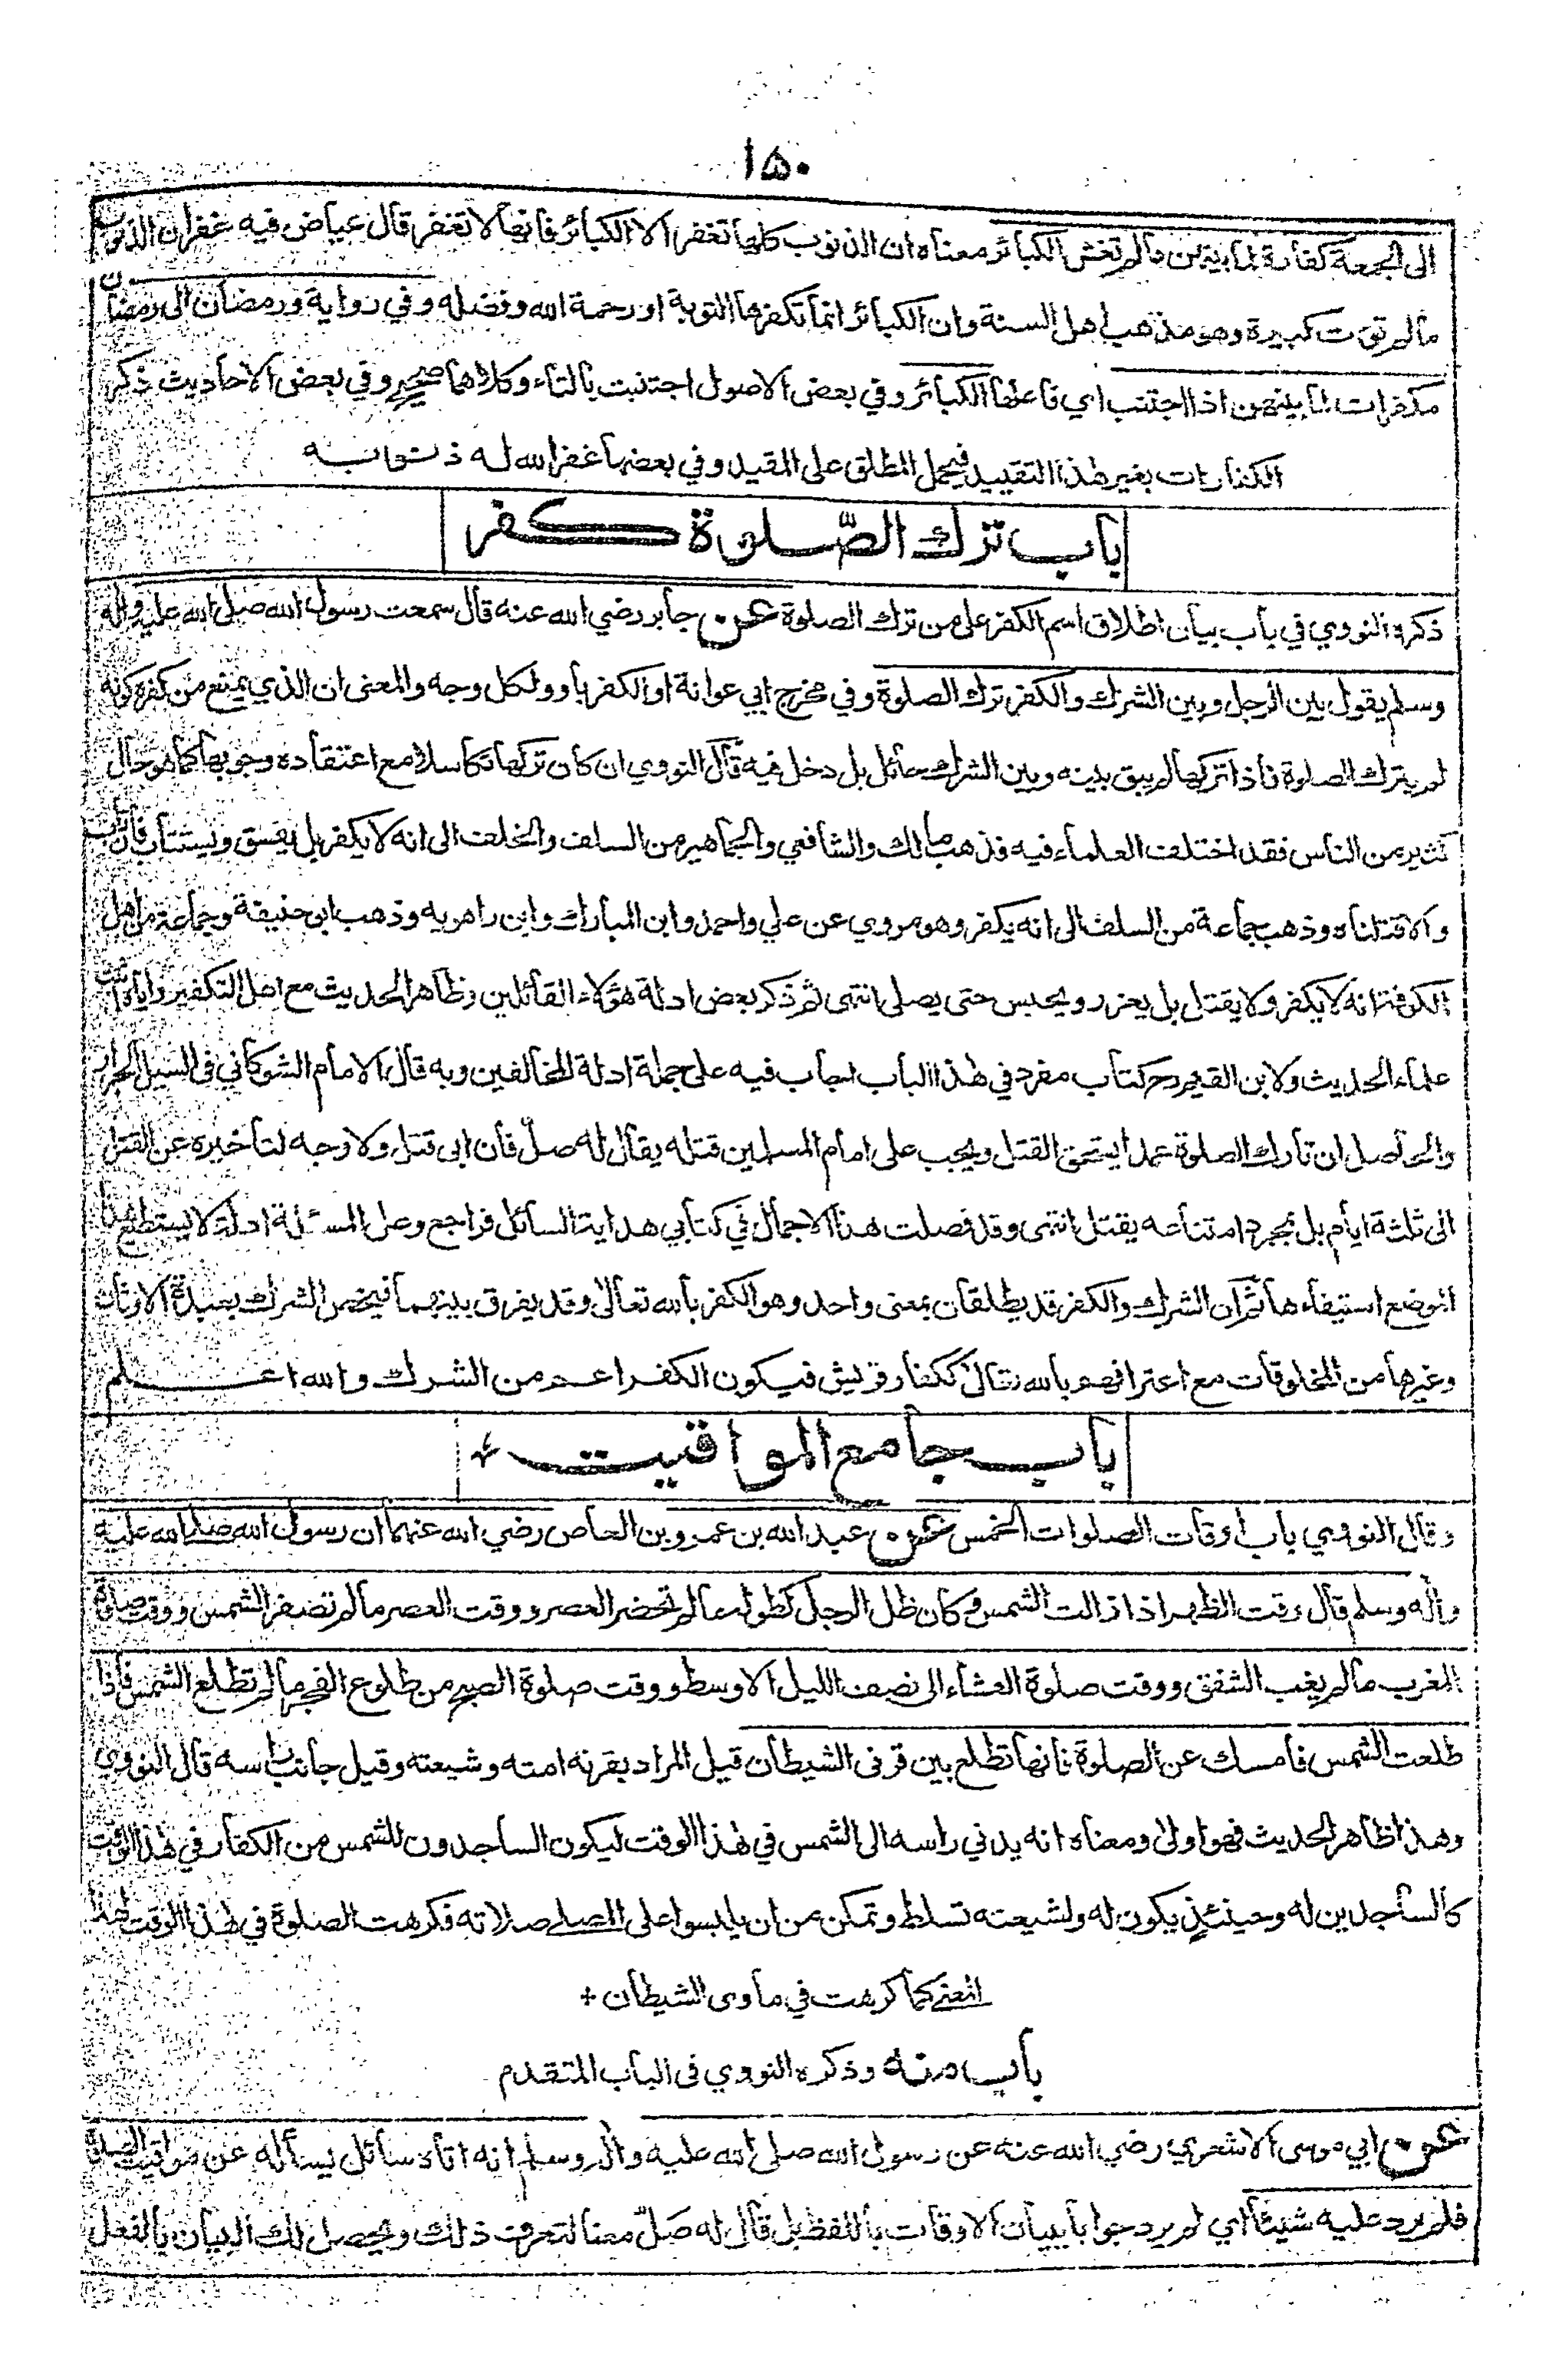 ١٥٠
الى الجمعة كفارة لما بينهن مالم تغش الكبائر معناه ان الذنوب كلها تغفر الا الكبائر فانها لا تغفر قال عياض فيه غفران الذنوب
مالم تؤت كبيرة وهو مذهب اهل السنة وان الكبائر انما تكفرها التوبة او رحمة الله وفضله وفي رواية ورمضان الى رمضان
مكفرات لما بينهن اذا اجتنب اي فاعلها الكبائر وفي بعض الاصول اجتنبت بالتاء وكلاهما صحيح وفي بعض الاحاديث ذكر
الكفارات بغير هذا التقييد فيحمل المطلق على المقيد وفي بعضها غفر الله له ذنوبه
باب ترك الصّلوة كفر
ذكره النووي في باب بيان اطلاق اسم الكفر على من ترك الصلوة عن جابر رضي الله عنه قال سمعت رسول الله صلى الله عليه واله
وسلم يقول بين الرجل وبين الشرك والكفر ترك الصلوة وفي مخرج ابي عوانة او الكفر بأو ولكل وجه والمعنى ان الذي يمنع من كفره كونه
لم يترك الصلوة فاذا تركها لم يبق بينه وبين الشرك حائل بل دخل فيه قال النووي ان كان تركها تكاسلا مع اعتقاده وجوبها كما هو حال
كثير من الناس فقد اختلف العلماء فيه فذهب مالك والشافعي والجماهير من السلف والخلف الى انه لا يكفر بل يفسق ويستتاب فان تاب
والا قتلناه وذهب جماعة من السلف الى انه يكفر وهو مروي عن علي واحمد وابن المبارك وابن راهويه وذهب ابو حنيفة وجماعة من اهل
الكوفة انه لا يكفر ولا يقتل بل يعزر ويحبس حتى يصلي انتهى ثم ذكر بعض ادلة هؤلاء القائلين وظاهر الحديث مع اهل التكفير
علماء الحديث ولابن القيم رح كتاب مفرد في هذا الباب اجاب فيه على جملة ادلة المخالفين وبه قال الامام الشوكاني في السيل الجرار
والحاصل ان تارك الصلوة عمدا يستحق القتل ويجب على امام المسلمين قتله يقال له صلّ فان ابى قتل ولا وجه لتأخيره عن القتل
الى ثلثة ايام بل بمجرد امتناعه يقتل انتهى وقد فصلت هذا الاجمال في كتابي هداية السائل فراجع وعلى المسئلة ادلة لا يستطيع هذا
الموضع استيفاءها ثم ان الشرك والكفر قد يطلقان بمعنى واحد وهو الكفر بالله تعالى وقد يفرق بينهما فيخص الشرك بعبدة الاوثان
وغيرها من المخلوقات مع اعترافهم بالله تعالى ككفار قريش فيكون الكفر اعم من الشرك والله اعلم
باب جامع المواقيت
وقال النووي باب اوقات الصلوات الخمس عن عبد الله بن عمرو بن العاص رضي الله عنهما ان رسول الله صلى الله عليه
واله وسلم قال وقت الظهر اذا زالت الشمس وكان ظل الرجل كطوله مالم تحضر العصر ووقت العصر مالم تصفر الشمس ووقت صلوة
المغرب مالم يغب الشفق ووقت صلوة العشاء الى نصف الليل الاوسط ووقت صلوة الصبح من طلوع الفجر مالم تطلع الشمس فاذا
طلعت الشمس فامسك عن الصلوة فانها تطلع بين قرني الشيطان قيل المراد بقرنه امته وشيعته وقيل جانب راسه قال النووي
وهذا ظاهر الحديث فهو اولى ومعناه انه يدني راسه الى الشمس في هذا الوقت ليكون الساجدون للشمس من الكفار في هذا الوقت
كالساجدين له وحينئذ يكون له ولشيعته تسلط وتمكن من ان يلبسوا على المصلي صلاته فكرهت الصلوة في هذا الوقت لهذا
المعنى كما كرهت في مأوى الشيطان +
باب منه وذكره النووي في الباب المتقدم
عن ابي موسى الاشعري رضي الله عنه عن رسول الله صلى الله عليه واله وسلم انه اتاه سائل يسأله عن مواقيت الصلوة
فلم يرد عليه شيئا اي لم يرد جوابا ببيان الاوقات باللفظ بل قال له صَلّ معنا لتعرف ذلك ويحصل لك البيان بالفعل